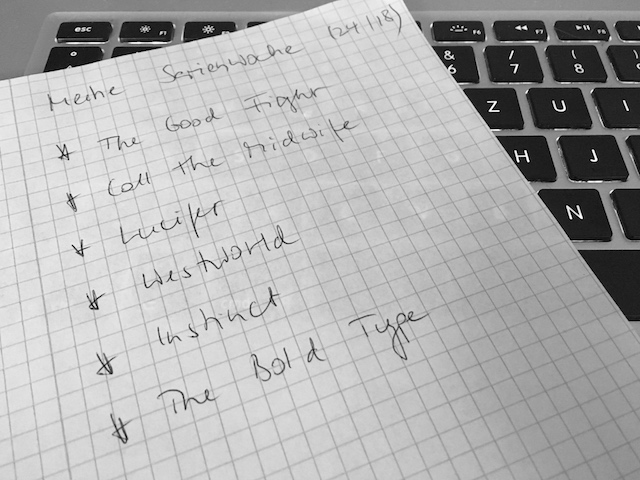 Meine Serienwoche (24/18)
* The Good Fight
* Call the Midwife
* Lucifer
* Westworld
* Instinct
* The Bold Type
esc F1 F2 F6 F7 F8
& 6 / 7 ( 8
Z U I
H J
N